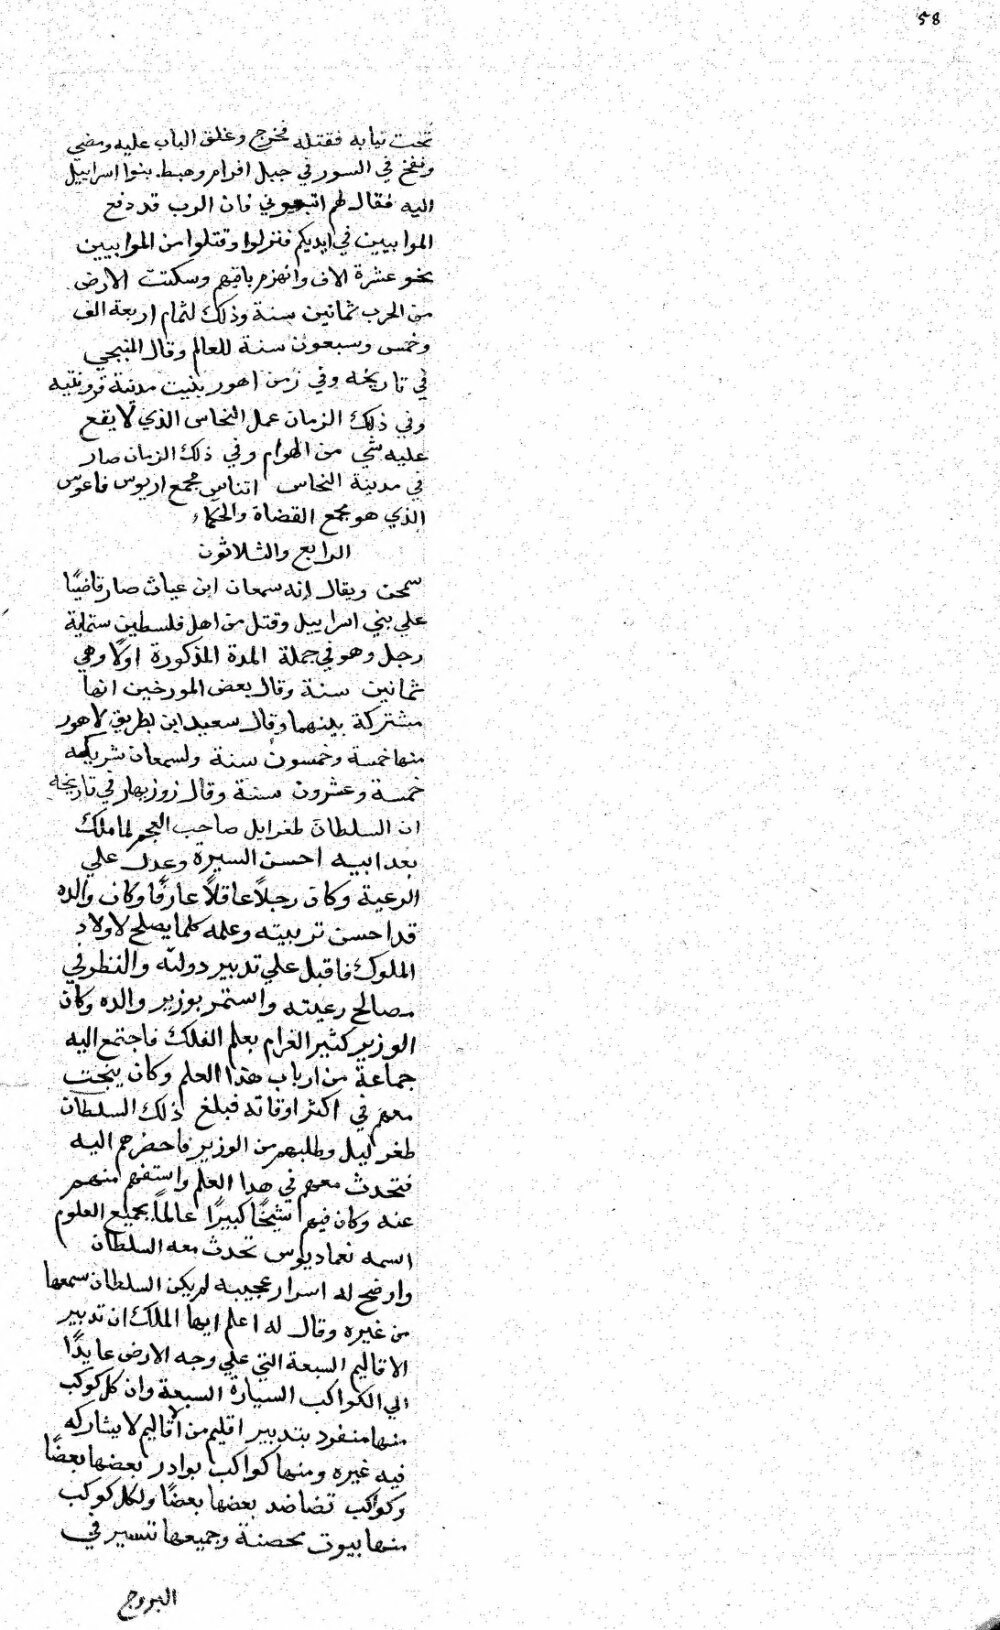 58
تحت تيابه فقتله فخرج وغلق الباب عليه ومضي
ونفخ في السور في جبل افرام وهبط بنوا اسراييل
اليه فقال لهم اتبعوني فان الرب قد دفع
الموابيين في ايديكم فنزلوا وقتلوا من الموابيين
نحو عشرة الاف وانهزم باقيهم وسكتت الارض
من الحرب ثمانين سنة وذلك لتمام اربعة الف
وخمس وسبعون سنة للعالم وقال المنبجي
في تاريخه وفي زمن اهور بنيت مدينة قرونتيه
وفي ذلك الزمان عمل النحاس الذي لا يقع
عليه شي من الهوام وفي ذلك الزمان صار
في مدينة النحاس اتناس مجمع اريوس فاغوس
الذي هو مجمع القضاة والحكماء
الرابع والثلاثون
سمحن ويقال انه سمعان ابن عياث صار قاضيًا
علي بني اسراييل وقتل من اهل فلسطين ستماية
رجل وهو في جملة المدة المذكورة اولًا وهي
ثمانين سنة وقال بعض المورخين انها
مشتركة بينهما وقال سعيد ابن بطريق لاهور
منها خمسة وخمسون سنة ولسمعان شريكه
خمسة وعشرون سنة وقال زوزبهار في تاريخه
ان السلطان طغرايل صاحب العجم لما ملك
بعد ابيه احسن السيرة وعدل علي
الرعية وكان رجلاً عاقلاً عارفًا وكان والده
قد احسن تربيته وعلمه كلما يصلح لاولاد
الملوك فاقبل علي تدبير دولته والنظر في
مصالح رعيته واستمر بوزير والده وكان
الوزير كثير الغرام بعلم الفلك فاجتمع اليه
جماعة من ارباب هذا العلم وكان يبحث
معهم في اكثر اوقاته فبلغ ذلك السلطان
طغرليل وطلبهم من الوزير فاحضرهم اليه
فتحدث معهم في هدا العلم واستفهم منهم
عنه وكان فيهم شيخًا كبيرًا عالمًا بجميع العلوم
اسمه نعماديوس تحدث معه السلطان
واوضح له اسرار عجيبه لم يكن السلطان سمعها
من غيره وقال له اعلم ايها الملك ان تدبير
الاقاليم السبعة التي علي وجه الارض عايدًا
الي الكواكب السيارة السبعة وان كل كوكب
منها منفرد بتدبير اقليم من الاقاليم لا يشاركه
فيه غيره ومنها كواكب بوادر بعضها بعضًا
وكواكب تضاضد بعضها بعضًا ولكل كوكب
منها بيوت محصنة وجميعها تتسير في
البروج